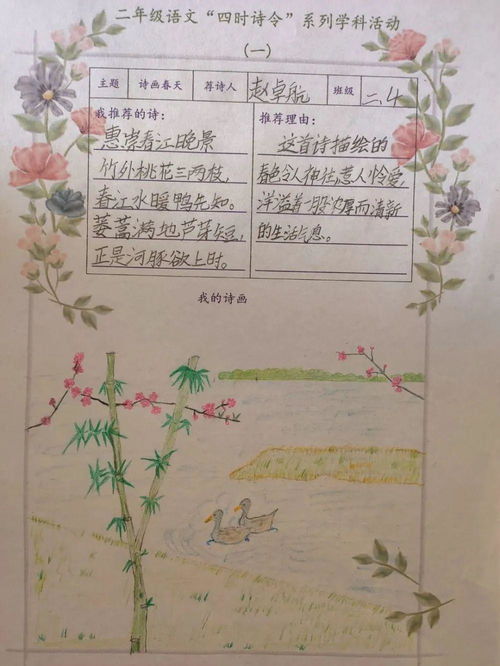 二年级语文“四时诗令”系列学科活动
（一）
主题 诗画春天 荐诗人 赵卓航 班级 二、4
我推荐的诗：
惠崇春江晚景
竹外桃花三两枝，
春江水暖鸭先知。
蒌蒿满地芦芽短，
正是河豚欲上时。
推荐理由：
这首诗描绘的
景色令人神往惹人怜爱，
洋溢着一股浓厚而清新
的生活气息。
我的诗画